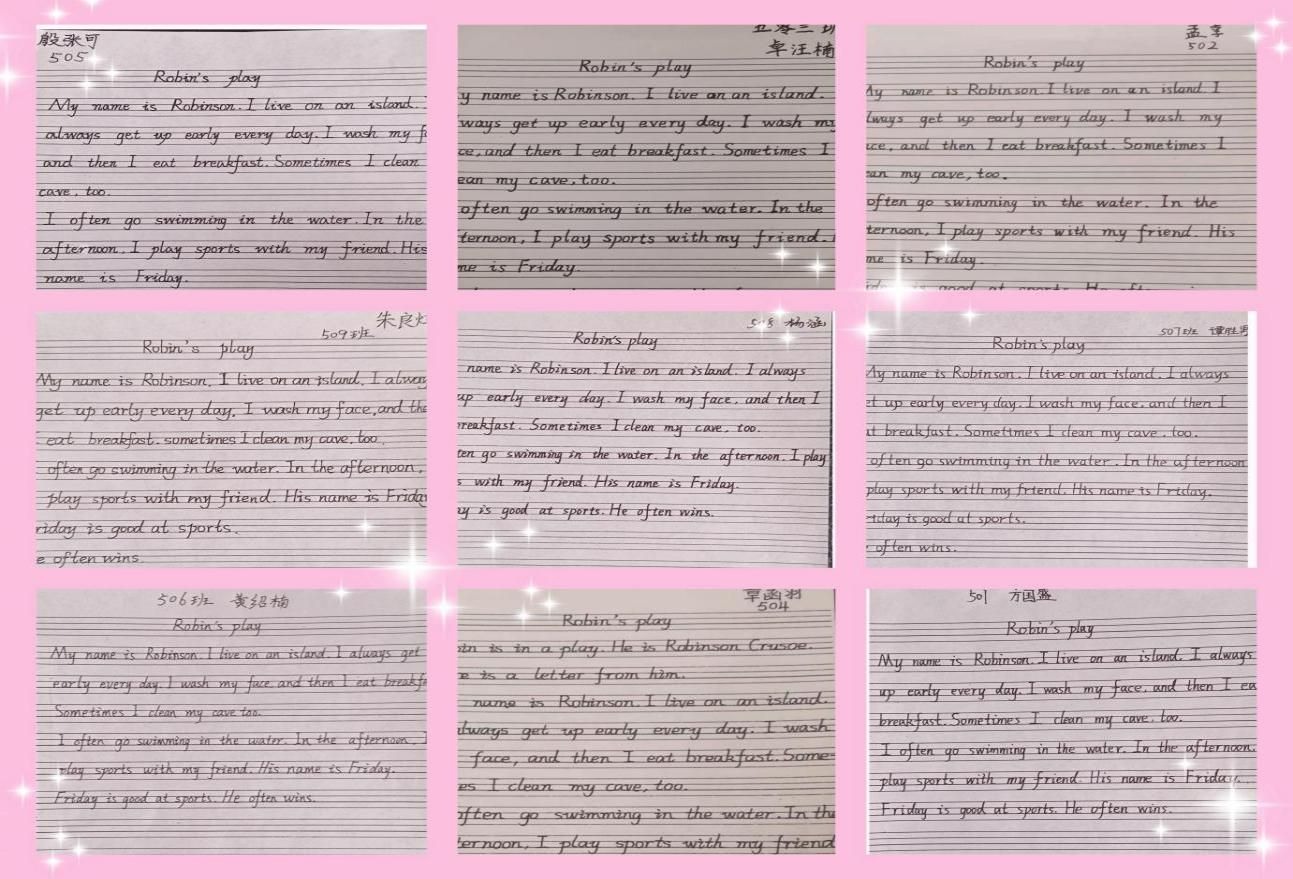 殷张可
505
Robin's play
My name is Robinson. I live on an island.
always get up early every day. I wash my
and then I eat breakfast. Sometimes I clean
cave, too.
I often go swimming in the water. In the
afternoon, I play sports with my friend. His
name is Friday.
五零三班
卓汪楠
Robin's play
y name is Robinson. I live on an island.
ways get up early every day. I wash my
ce, and then I eat breakfast. Sometimes I
ean my cave, too.
often go swimming in the water. In the
ternoon, I play sports with my friend.
me is Friday.
孟享
502
Robin's play
My name is Robinson. I live on an island. I
lways get up early every day. I wash my
ce, and then I eat breakfast. Sometimes I
an my cave, too.
often go swimming in the water. In the
ternoon, I play sports with my friend. His
me is Friday.
iday is good at sports. He often
朱良
509班
Robin's play
My name is Robinson. I live on an island. I alway
get up early every day. I wash my face, and the
eat breakfast. sometimes I clean my cave, too.
often go swimming in the water. In the afternoon,
play sports with my friend. His name is Friday
riday is good at sports.
e often wins.
杨涵
Robin's play
name is Robinson. I live on an island. I always
up early every day. I wash my face, and then I
reakfast. Sometimes I clean my cave, too.
ten go swimming in the water. In the afternoon. I play
s with my friend. His name is Friday.
ay is good at sports. He often wins.
507班 谭胜
Robin's play
My name is Robinson. I live on an island. I always
et up early every day. I wash my face, and then I
at breakfast. Sometimes I clean my cave, too.
often go swimming in the water. In the afternoon
play sports with my friend. His name is Friday.
riday is good at sports.
often wins.
506班 黄绍楠
Robin's play
My name is Robinson. I live on an island. I always get
early every day. I wash my face, and then I eat breakf
Sometimes I clean my cave too.
I often go swimming in the water. In the afternoon, I
play sports with my friend. His name is Friday.
Friday is good at sports. He often wins.
覃函羽
504
Robin's play
in is in a play. He is Robinson Crusoe.
e is a letter from him.
name is Robinson. I live on an island.
lways get up early every day. I wash
face, and then I eat breakfast. Some-
es I clean my cave, too.
often go swimming in the water. In the
ernoon, I play sports with my friend
501 方国盛
Robin's play
My name is Robinson. I live on an island. I always
up early every day. I wash my face, and then I ea
breakfast. Sometimes I clean my cave, too.
I often go swimming in the water. In the afternoon.
play sports with my friend. His name is Friday.
Friday is good at sports. He often wins.